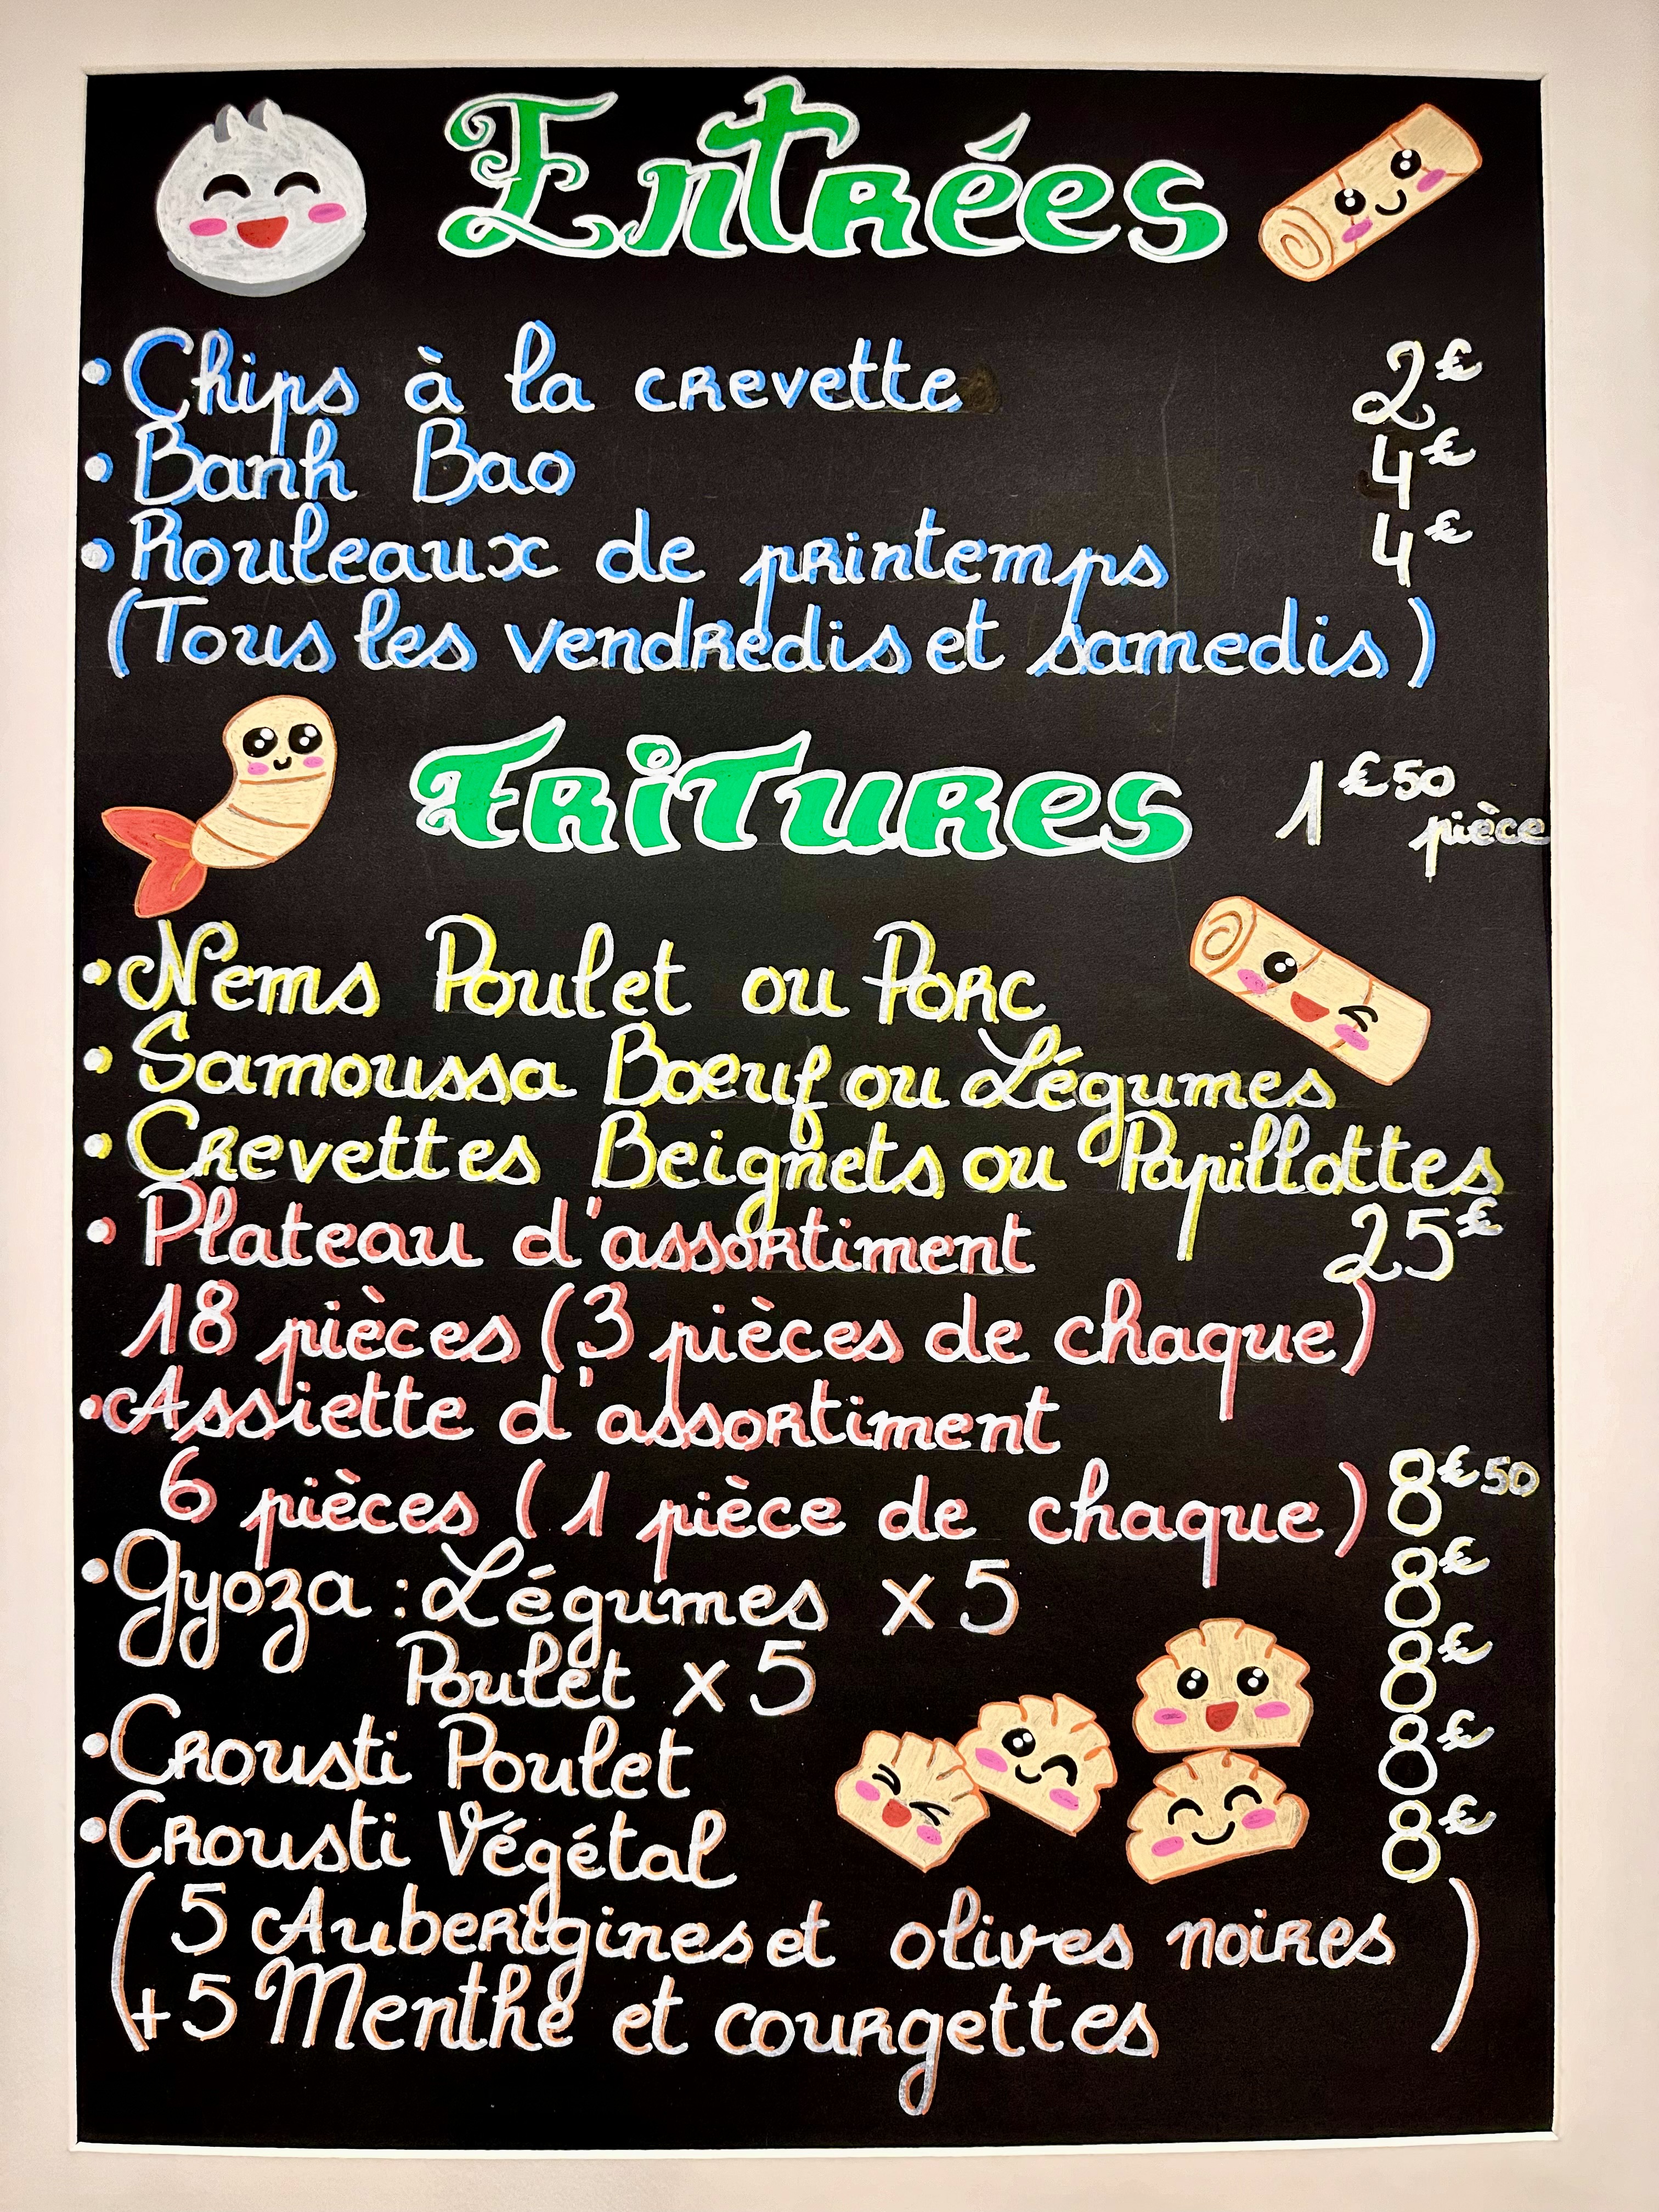 Entrées
• Chips à la crevette 2€
• Banh Bao 4€
• Rouleaux de printemps 4€
(Tous les vendredis et samedis)
Fritures 1€50 pièce
• Nems Poulet ou Porc
• Samoussa Bœuf ou Légumes
• Crevettes Beignets ou Papillottes
• Plateau d'assortiment 25€
18 pièces (3 pièces de chaque)
• Assiette d'assortiment
6 pièces (1 pièce de chaque) 8€50
• Gyoza : Légumes x 5 8€
Poulet x 5 8€
• Crousti Poulet 8€
• Crousti Végétal 8€
(5 Auberigines et olives noires
+ 5 Menthe et courgettes)